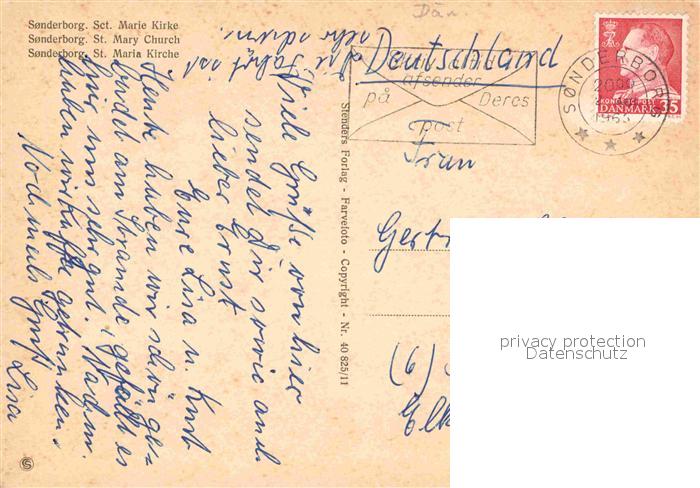 Sønderborg. Sct. Marie Kirke
Sønderborg. St. Mary Church
Sønderborg. St. Maria Kirche
Viele Grüße von hier
sendet Dir sowie auch
lieber Ernst
Eure Lisa u. Kurt
Heute haben wir schön ge-
badet am Strande, gefällt es
hier uns sehr gut. Nachm.
haben wir Kaffee getrunken.
Nochmals Gruß Lisa
Die Fahrt ist
sehr schön.
Stenders Forlag - Farvefoto - Copyright - Nr. 40 825/11
Dän
Deutschland
afsender
på Deres
post
SØNDERBORG
DANMARK 35
Frau
Gert
(6)
Elk
privacy protection
Datenschutz